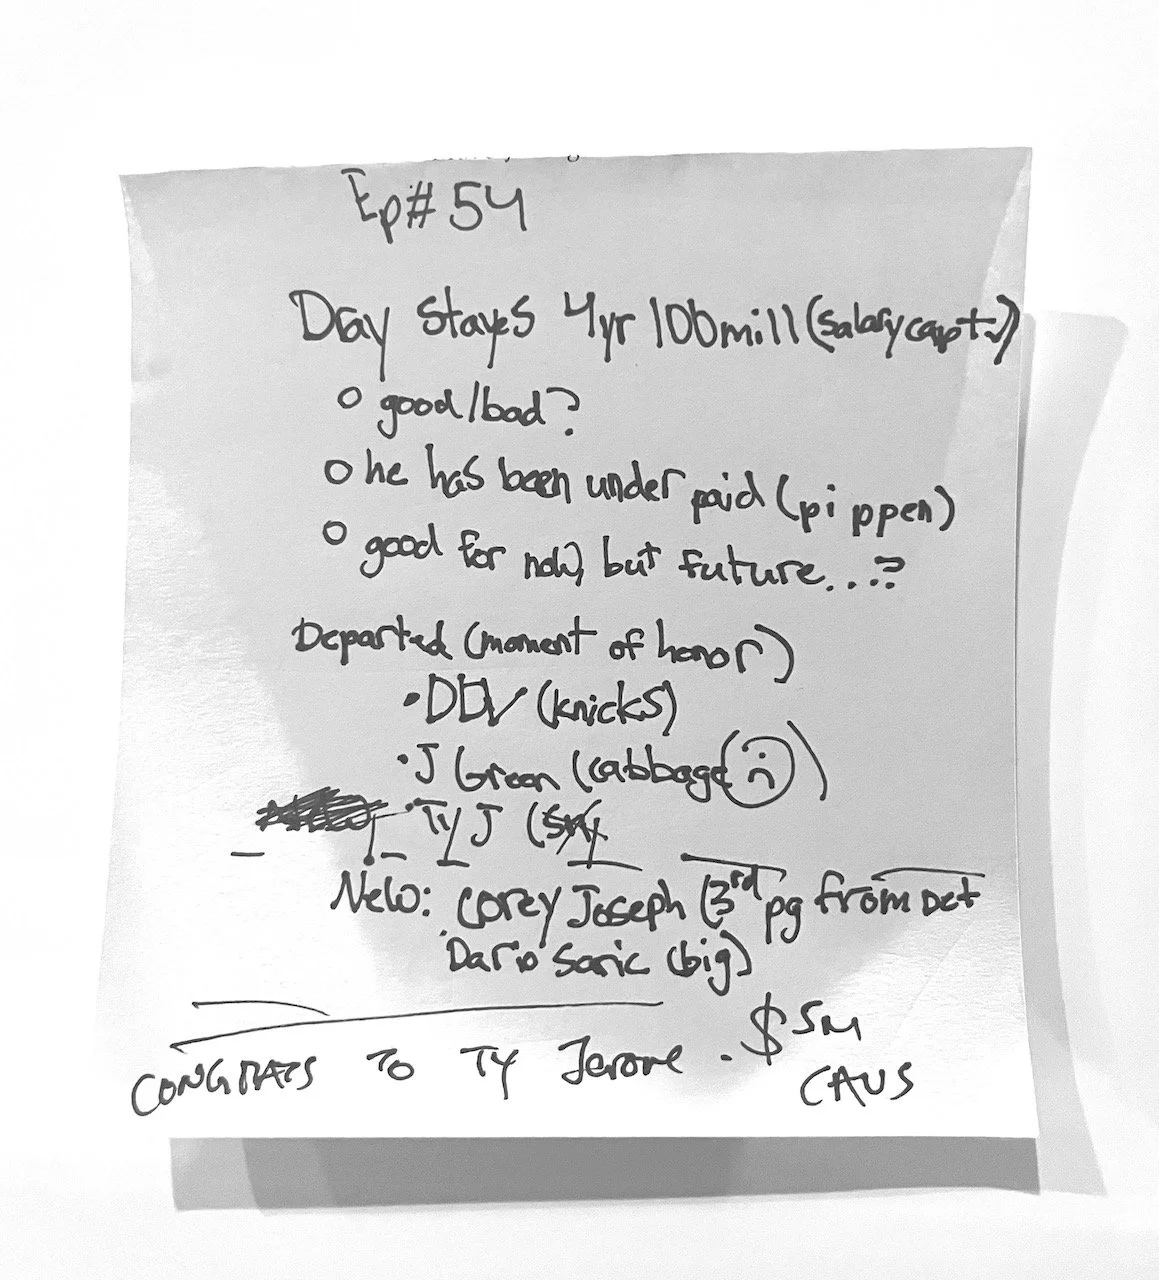 Ep# 54
Dray stayes 4yr 100mill (salary cap↑)
good/bad?
he has been under paid (pippen)
good for now, but future...?
Departed (moment of honor)
• DDV (knicks)
• J Green (cabbage ☹)
• Ty J
New: Corey Joseph (3rd pg from Det
Dario Saric (big)
CONGRATS TO TY Jerome. $5M
CAVS